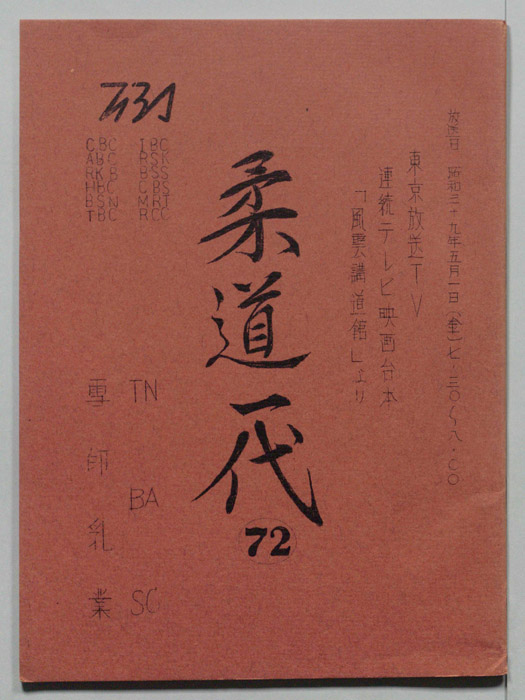 放送日 昭和三十九年五月一日(金)七・三〇〜八・〇〇
東京放送TV
連続テレビ映画台本
「風雲講道館」より
柔道一代
72
CBC IBC
RSK
RKB BSS
HBC CBS
BSN MRT
TBC RCC
TN BA SC
雪印乳業